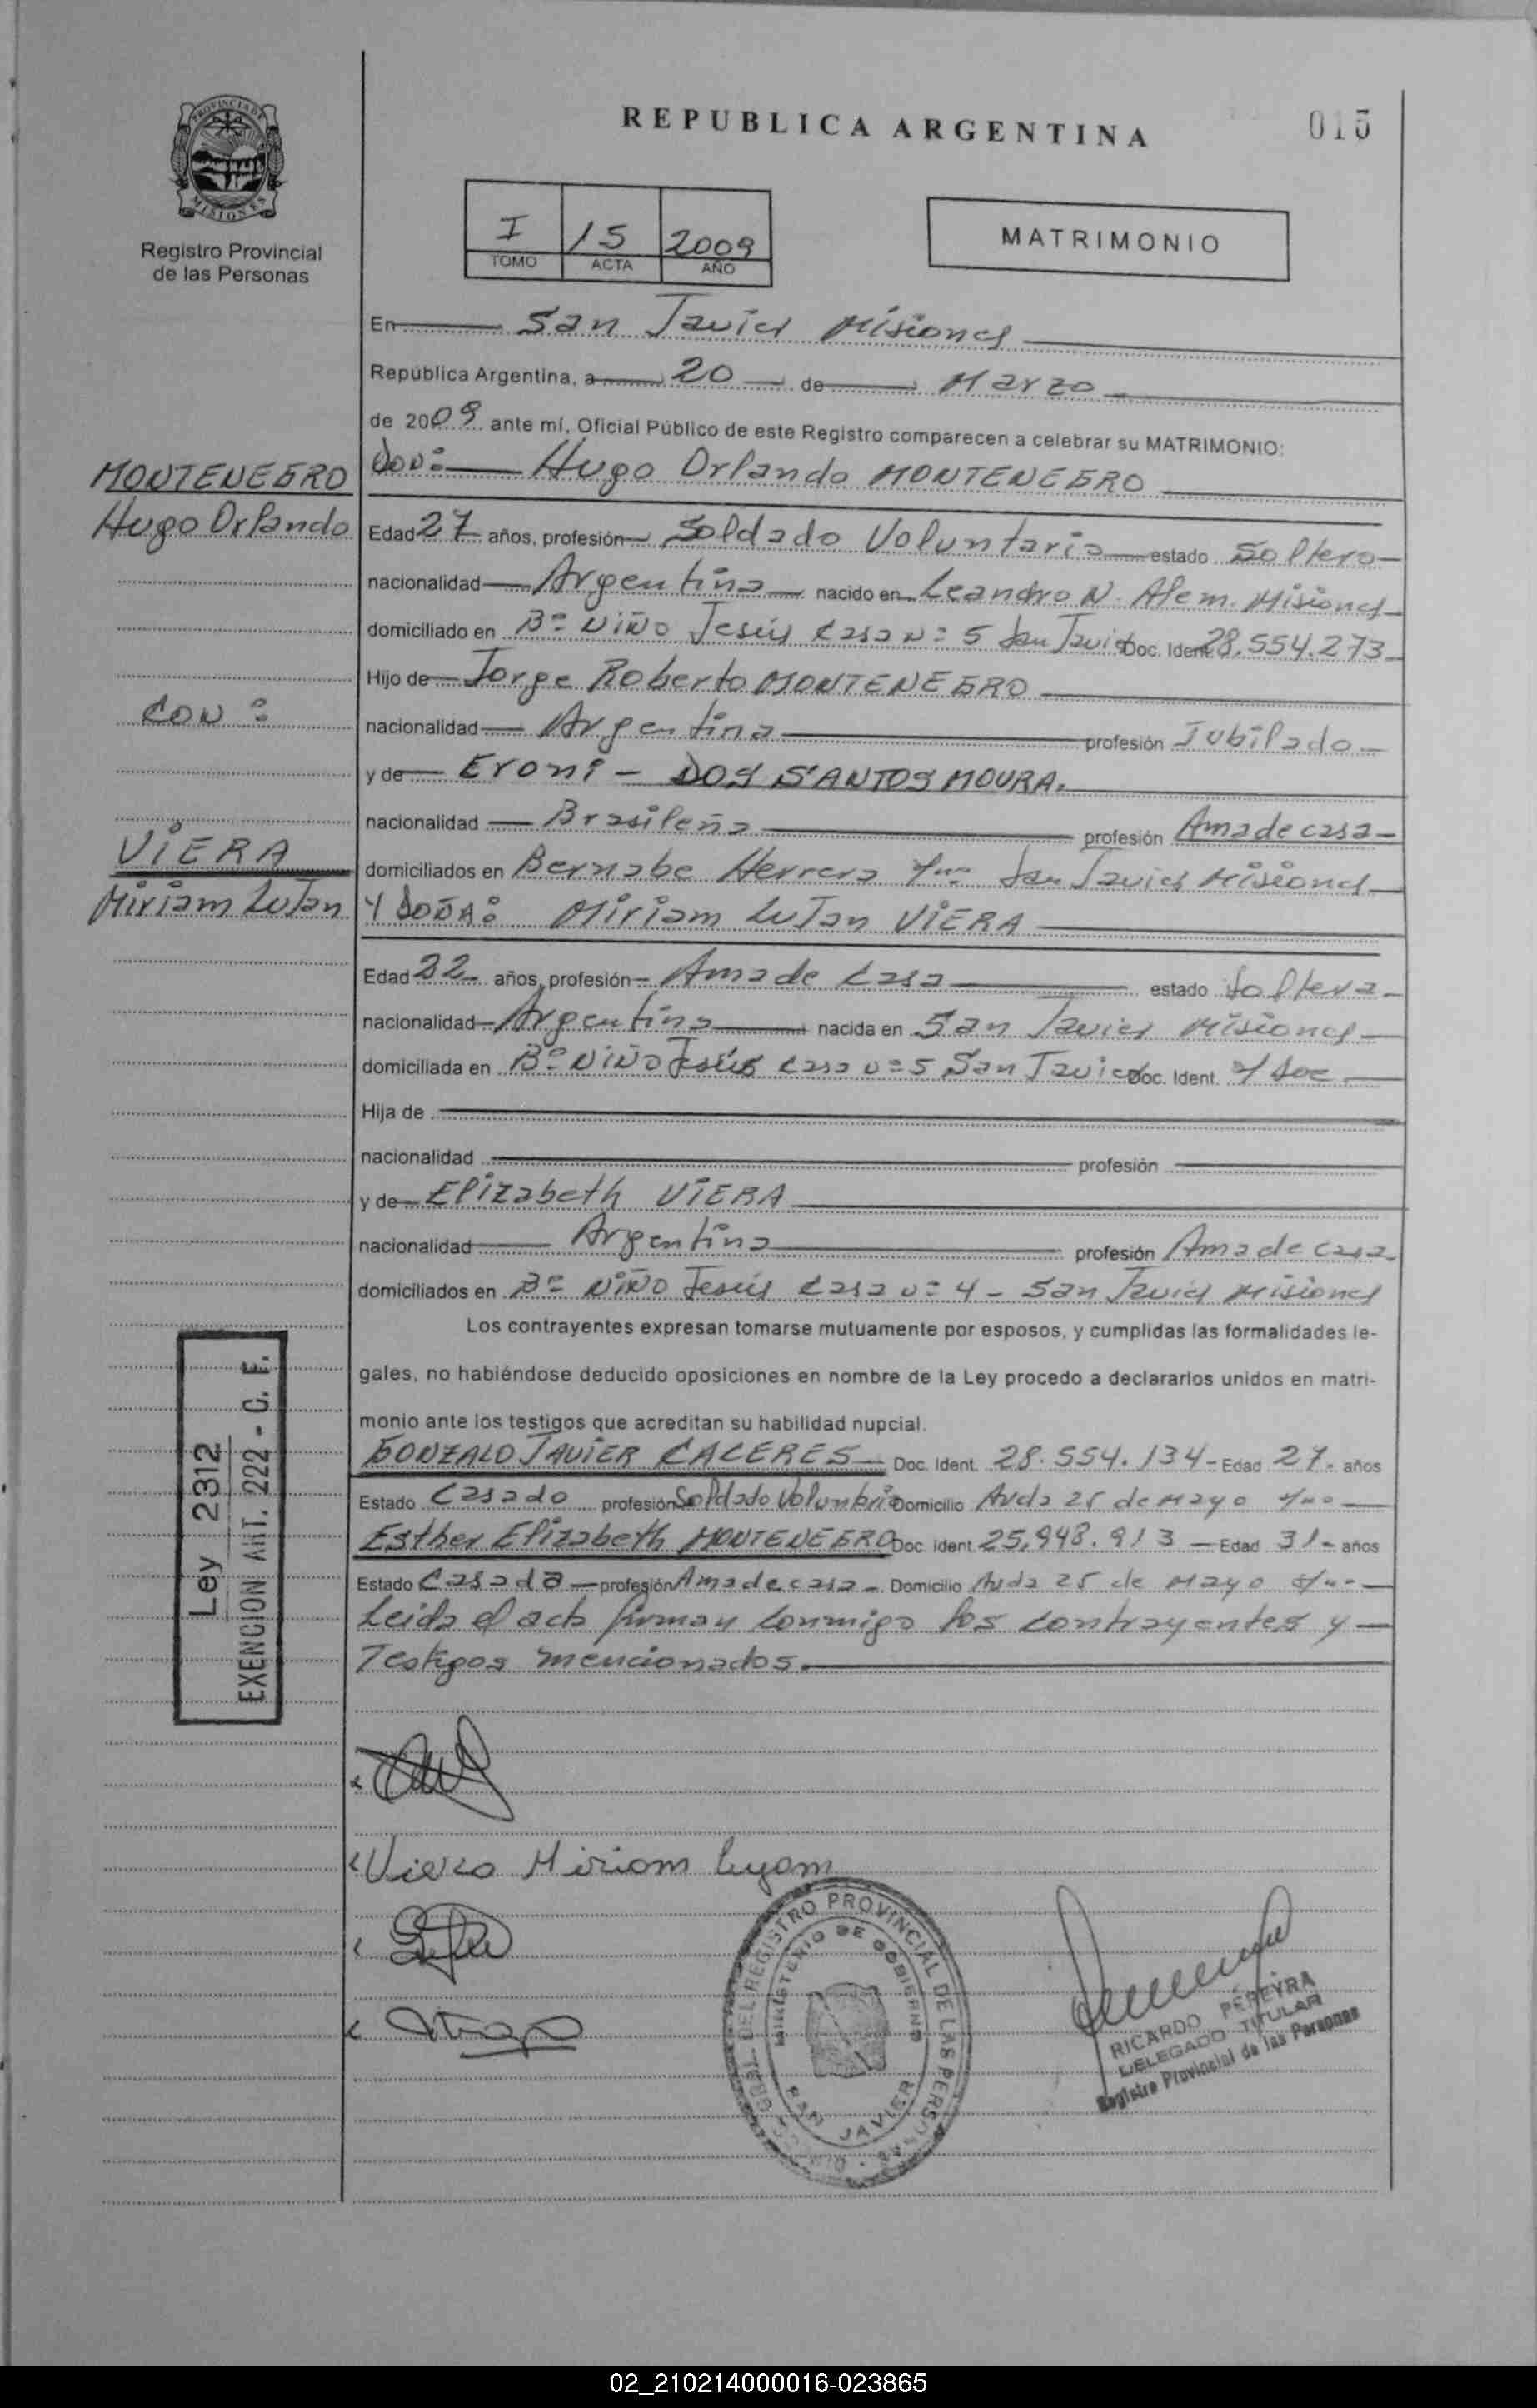 REPUBLICA ARGENTINA
015
PROVINCIA DE
MISIONES
Registro Provincial
de las Personas
I 15 2009
TOMO ACTA AÑO
MATRIMONIO
En San Javier Misiones
República Argentina, a 20 de Marzo
de 2009 ante mí, Oficial Público de este Registro comparecen a celebrar su MATRIMONIO:
MONTENEGRO
Hugo Orlando
DON: Hugo Orlando MONTENEGRO
Edad 27 años, profesión Soldado Voluntario estado Soltero
nacionalidad Argentina nacido en Leandro N. Alem. Misiones
domiciliado en Bº NIÑO Jesús Casa Nº 5 San Javier Doc. Ident. 28.554.273
Hijo de Jorge Roberto MONTENEGRO
CON:
nacionalidad Argentina profesión Jubilado
y de Eroni - DOS SANTOS MOURA.
nacionalidad Brasileña profesión Ama de casa
VIERA
Miriam Lujan
domiciliados en Bernabe Herrera San Javier Misiones
Y DOÑA: Miriam Lujan VIERA
Edad 32 años, profesión Ama de Casa estado Soltera
nacionalidad Argentina nacida en San Javier Misiones
domiciliada en Bº NIÑO Jesús casa Nº 5 San Javier Doc. Ident. s/ doc
Hija de
nacionalidad profesión
y de Elizabeth VIERA
nacionalidad Argentina profesión Ama de casa
domiciliados en Bº NIÑO Jesús Casa Nº 4 - San Javier Misiones
Los contrayentes expresan tomarse mutuamente por esposos, y cumplidas las formalidades le-
gales, no habiéndose deducido oposiciones en nombre de la Ley procedo a declararlos unidos en matri-
monio ante los testigos que acreditan su habilidad nupcial.
GONZALO JAVIER CACERES Doc. Ident. 28.554.134 - Edad 27 años
Estado Casado profesión Soldado Voluntario Domicilio Avda 25 de Mayo
Esther Elizabeth MONTENEGRO Doc. Ident. 25.948.913 - Edad 31 años
Estado Casada profesión Ama de casa - Domicilio Avda 25 de Mayo
Leida el acta firman conmigo los contrayentes y
Testigos mencionados.
Ley 2312
EXENCION ART. 222 - C. F.
Viera Miriam Lujam
REGISTRO PROVINCIAL DE LAS PERSONAS
MINISTERIO DE GOBIERNO
SAN JAVIER
RICARDO PEREYRA
DELEGADO TITULAR
Registro Provincial de las Personas
02_210214000016-023865